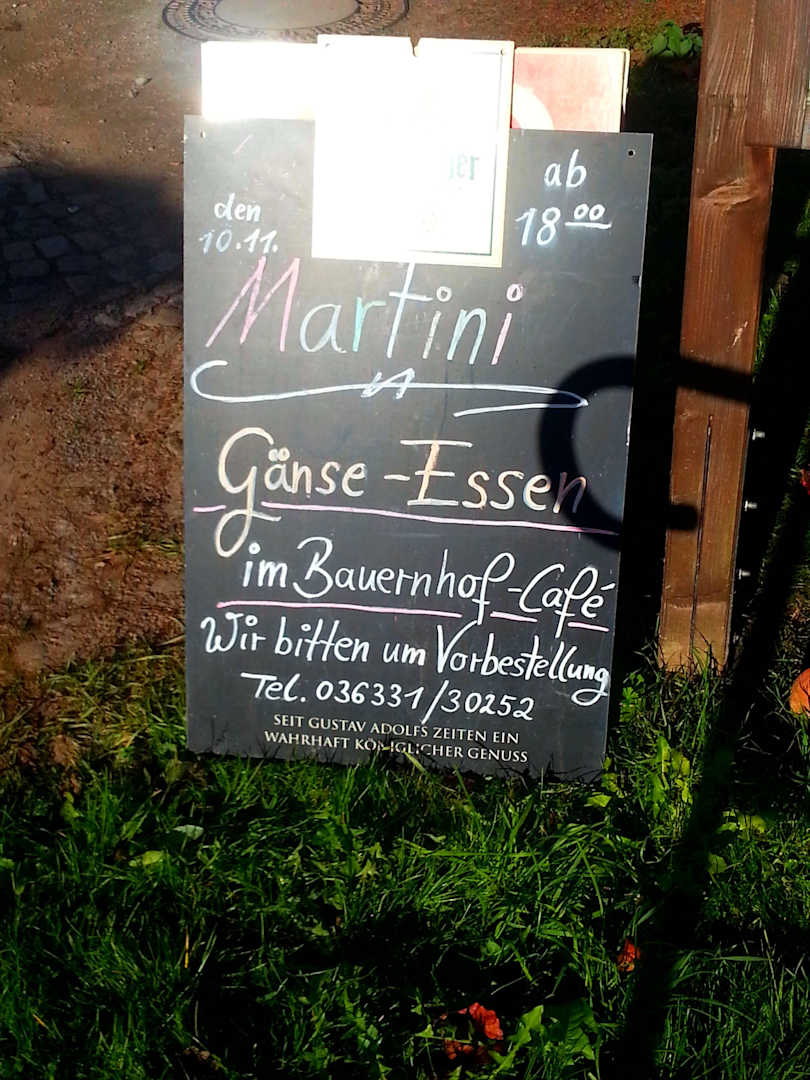 den
10.11.
ab
18 00
Martini
Gänse-Essen
im Bauernhof-Café
Wir bitten um Vorbestellung
Tel. 036331/30252
SEIT GUSTAV ADOLFS ZEITEN EIN
WAHRHAFT KÖNIGLICHER GENUSS